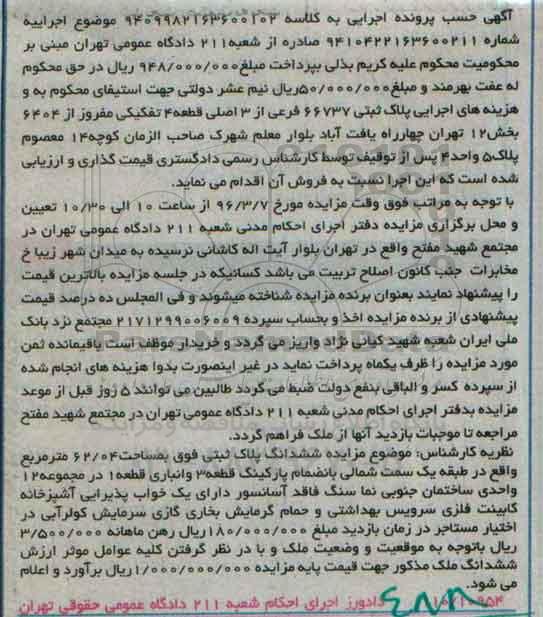 آگهی حسب پرونده اجرایی به کلاسه ۹۴۰۹۹۸۲۱۶۳۶۰۰۱۰۲ موضوع اجراییه
شماره ۹۴۱۰۴۲۲۱۶۳۶۰۰۲۱۱ صادره از شعبه۲۱۱ دادگاه عمومی تهران مبنی بر
محکومیت محکوم علیه کریم بذلی بپرداخت مبلغ۹۴۸/۰۰۰/۰۰۰ ریال در حق محکوم
له عفت بهرمند و مبلغ۵۰/۰۰۰/۰۰۰ریال نیم عشر دولتی جهت استیفای محکوم به و
هزینه های اجرایی پلاک ثبتی ۶۶۷۳۷ فرعی از ۳ اصلی قطعه۴ تفکیکی مفروز از ۶۴۰۴
بخش۱۲ تهران چهارراه یافت آباد بلوار معلم شهرک صاحب الزمان کوچه۱۴ معصوم
پلاک۵ واحد۴ پس از توقیف توسط کارشناس رسمی دادگستری قیمت گذاری و ارزیابی
شده است که این اجرا نسبت به فروش آن اقدام می نماید.
با توجه به مراتب فوق وقت مزایده مورخ ۹۶/۳/۷ از ساعت ۱۰ الی ۱۰/۳۰ تعیین
و محل برگزاری مزایده دفتر اجرای احکام مدنی شعبه ۲۱۱ دادگاه عمومی تهران در
مجتمع شهید مفتح واقع در تهران بلوار آیت اله کاشانی نرسیده به میدان شهر زیبا خ
مخابرات جنب کانون اصلاح تربیت می باشد کسانیکه در جلسه مزایده بالاترین قیمت
را پیشنهاد نمایند بعنوان برنده مزایده شناخته میشوند و فی المجلس ده درصد قیمت
پیشنهادی از برنده مزایده اخذ و بحساب سپرده ۲۱۷۱۲۹۹۰۰۶۰۰۹ مجتمع نزد بانک
ملی ایران شعبه شهید کیانی نژاد واریز می گردد و خریدار موظف است باقیمانده ثمن
مورد مزایده را ظرف یکماه پرداخت نماید در غیر اینصورت بدوا هزینه های انجام شده
از سپرده کسر و الباقی بنفع دولت ضبط می گردد طالبین می توانند ۵ روز قبل از موعد
مزایده بدفتر اجرای احکام مدنی شعبه ۲۱۱ دادگاه عمومی تهران در مجتمع شهید مفتح
مراجعه تا موجبات بازدید آنها از ملک فراهم گردد.
نظریه کارشناس: موضوع مزایده ششدانگ پلاک ثبتی فوق بمساحت۶۲/۰۴ مترمربع
واقع در طبقه یک سمت شمالی بانضمام پارکینگ قطعه۳ وانباری قطعه۱ در مجموعه۱۲
واحدی ساختمان جنوبی نما سنگ فاقد آسانسور دارای یک خواب پذیرایی آشپزخانه
کابینت فلزی سرویس بهداشتی و حمام گرمایش بخاری گازی سرمایش کولرآبی در
اختیار مستاجر در زمان بازدید مبلغ ۱۸۰/۰۰۰/۰۰۰ریال رهن ماهانه ۳/۵۰۰/۰۰۰
ریال باتوجه به موقعیت و وضعیت ملک و با در نظر گرفتن کلیه عوامل موثر ارزش
ششدانگ ملک مذکور جهت قیمت پایه مزایده ۱/۰۰۰/۰۰۰/۰۰۰ریال برآورد و اعلام
می شود.
۱۱۰/۱۰۹۵۴ دادورز اجرای احکام شعبه ۲۱۱ دادگاه عمومی حقوقی تهران